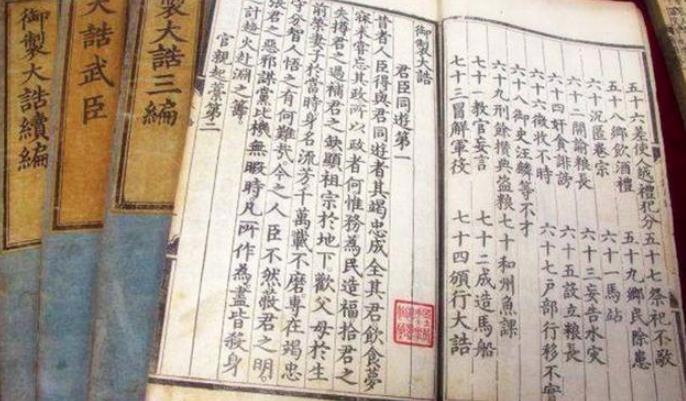 五十六差使人越禮犯分 五十七祭祀不敬
五十八鄉飲酒禮 五十九鄉民除患
六十沉匿卷宗 六十一馬站
六十二開諭粮長 六十三妄告水災
六十四奸貪誹謗 六十五設立粮長
六十六徵收不時 六十七戶部行移不實
六十八御史汪麟等不才
六十九刑餘攢典盜粮 七十和州魚課
七十一教官妄言 七十二成造馬船
七十三冒解軍役 七十四頒行大誥
御製大誥
君臣同遊第一
昔者人臣得與君同遊者其竭忠成全其君飲食夢
寐未嘗忘其政所以政者何惟務為民造福拾君之
失撙君之過補君之缺顯祖宗於地下歡父母於生
前榮妻子於當時身名流芳千萬載不磨專在竭忠
守分智人悟之有何難哉今之人臣不然蔽君之明
張君之惡邪謀黨比機無暇時凡所作為盡皆殺身
計趨火赴淵之籌
官親起藁第二
製大誥三編
大誥武臣
御製大誥續編